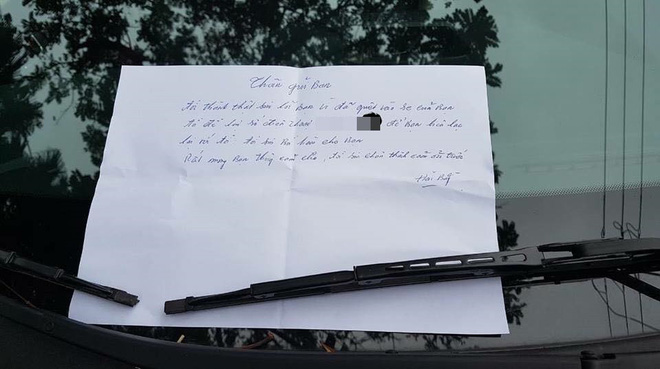 Thân gửi Bạn
Tôi thành thật xin lỗi Bạn vì đã quệt vào xe của Bạn
tôi để lại số điện thoại để Bạn liên lạc
lại với tôi tôi bồi cho Bạn
Rất mong Bạn thông cảm cho, tôi xin chân thành cảm ơn
Hải